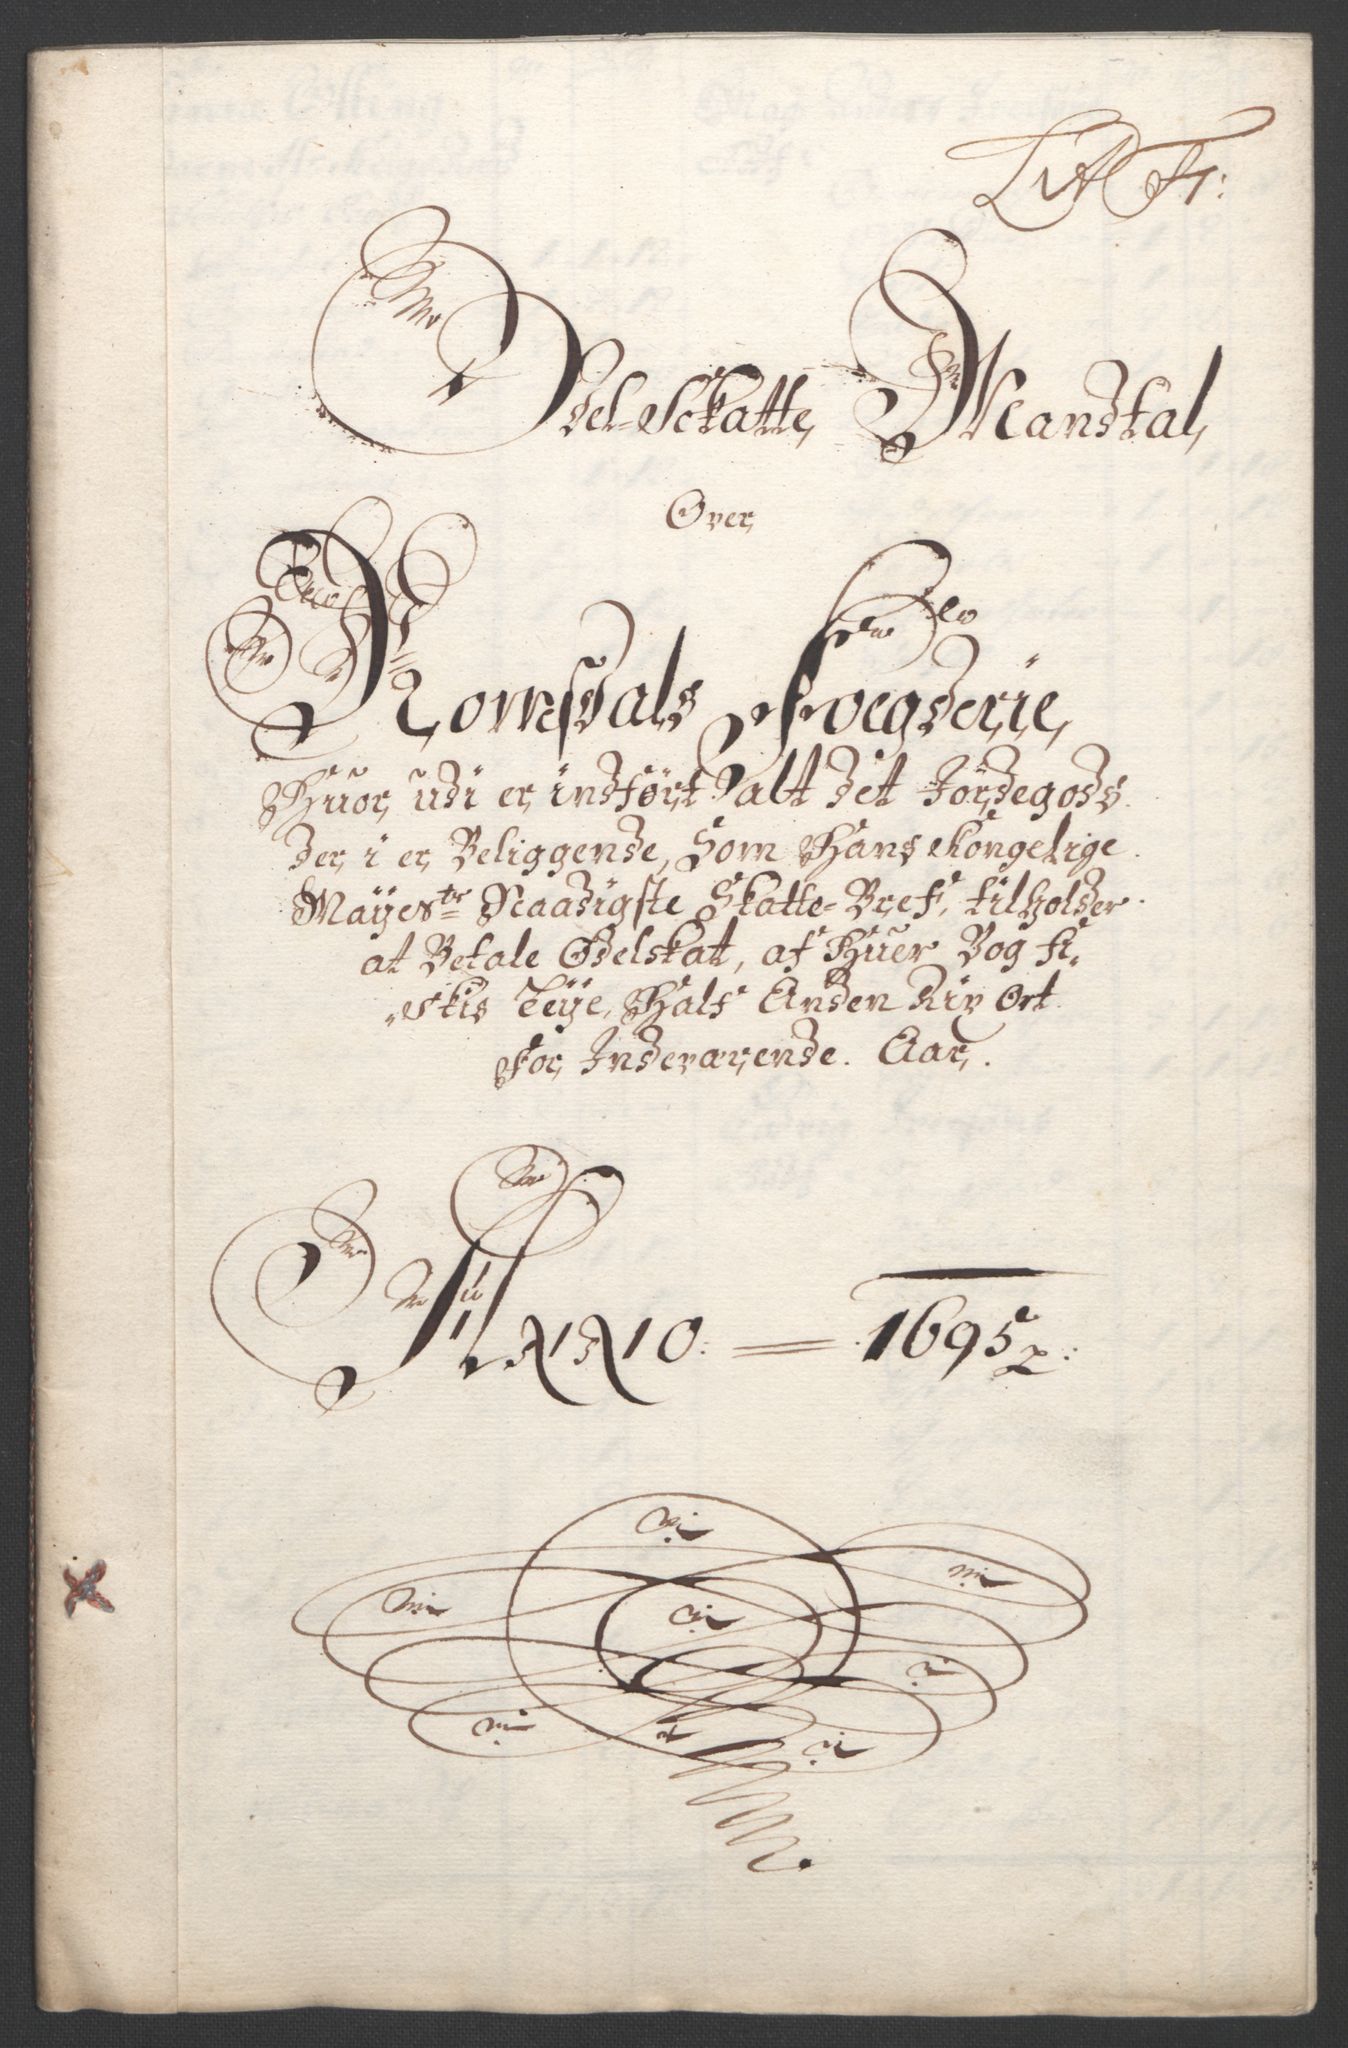 Litt F:
Odel-Schatte Mandtal,
Over,
Romsdals Foegderie,
Huor udi er indført alt det Jordegods
der i er Beliggende, Som Hans Kongelige
Mayestr Naadigste Skatte-Bref, tilholder
at Betale Odelskat, af Huer Vog fi„
„skis Leye, Half Anden Rix Ort
for Indeværende. Aar.
ANNO. = 1695